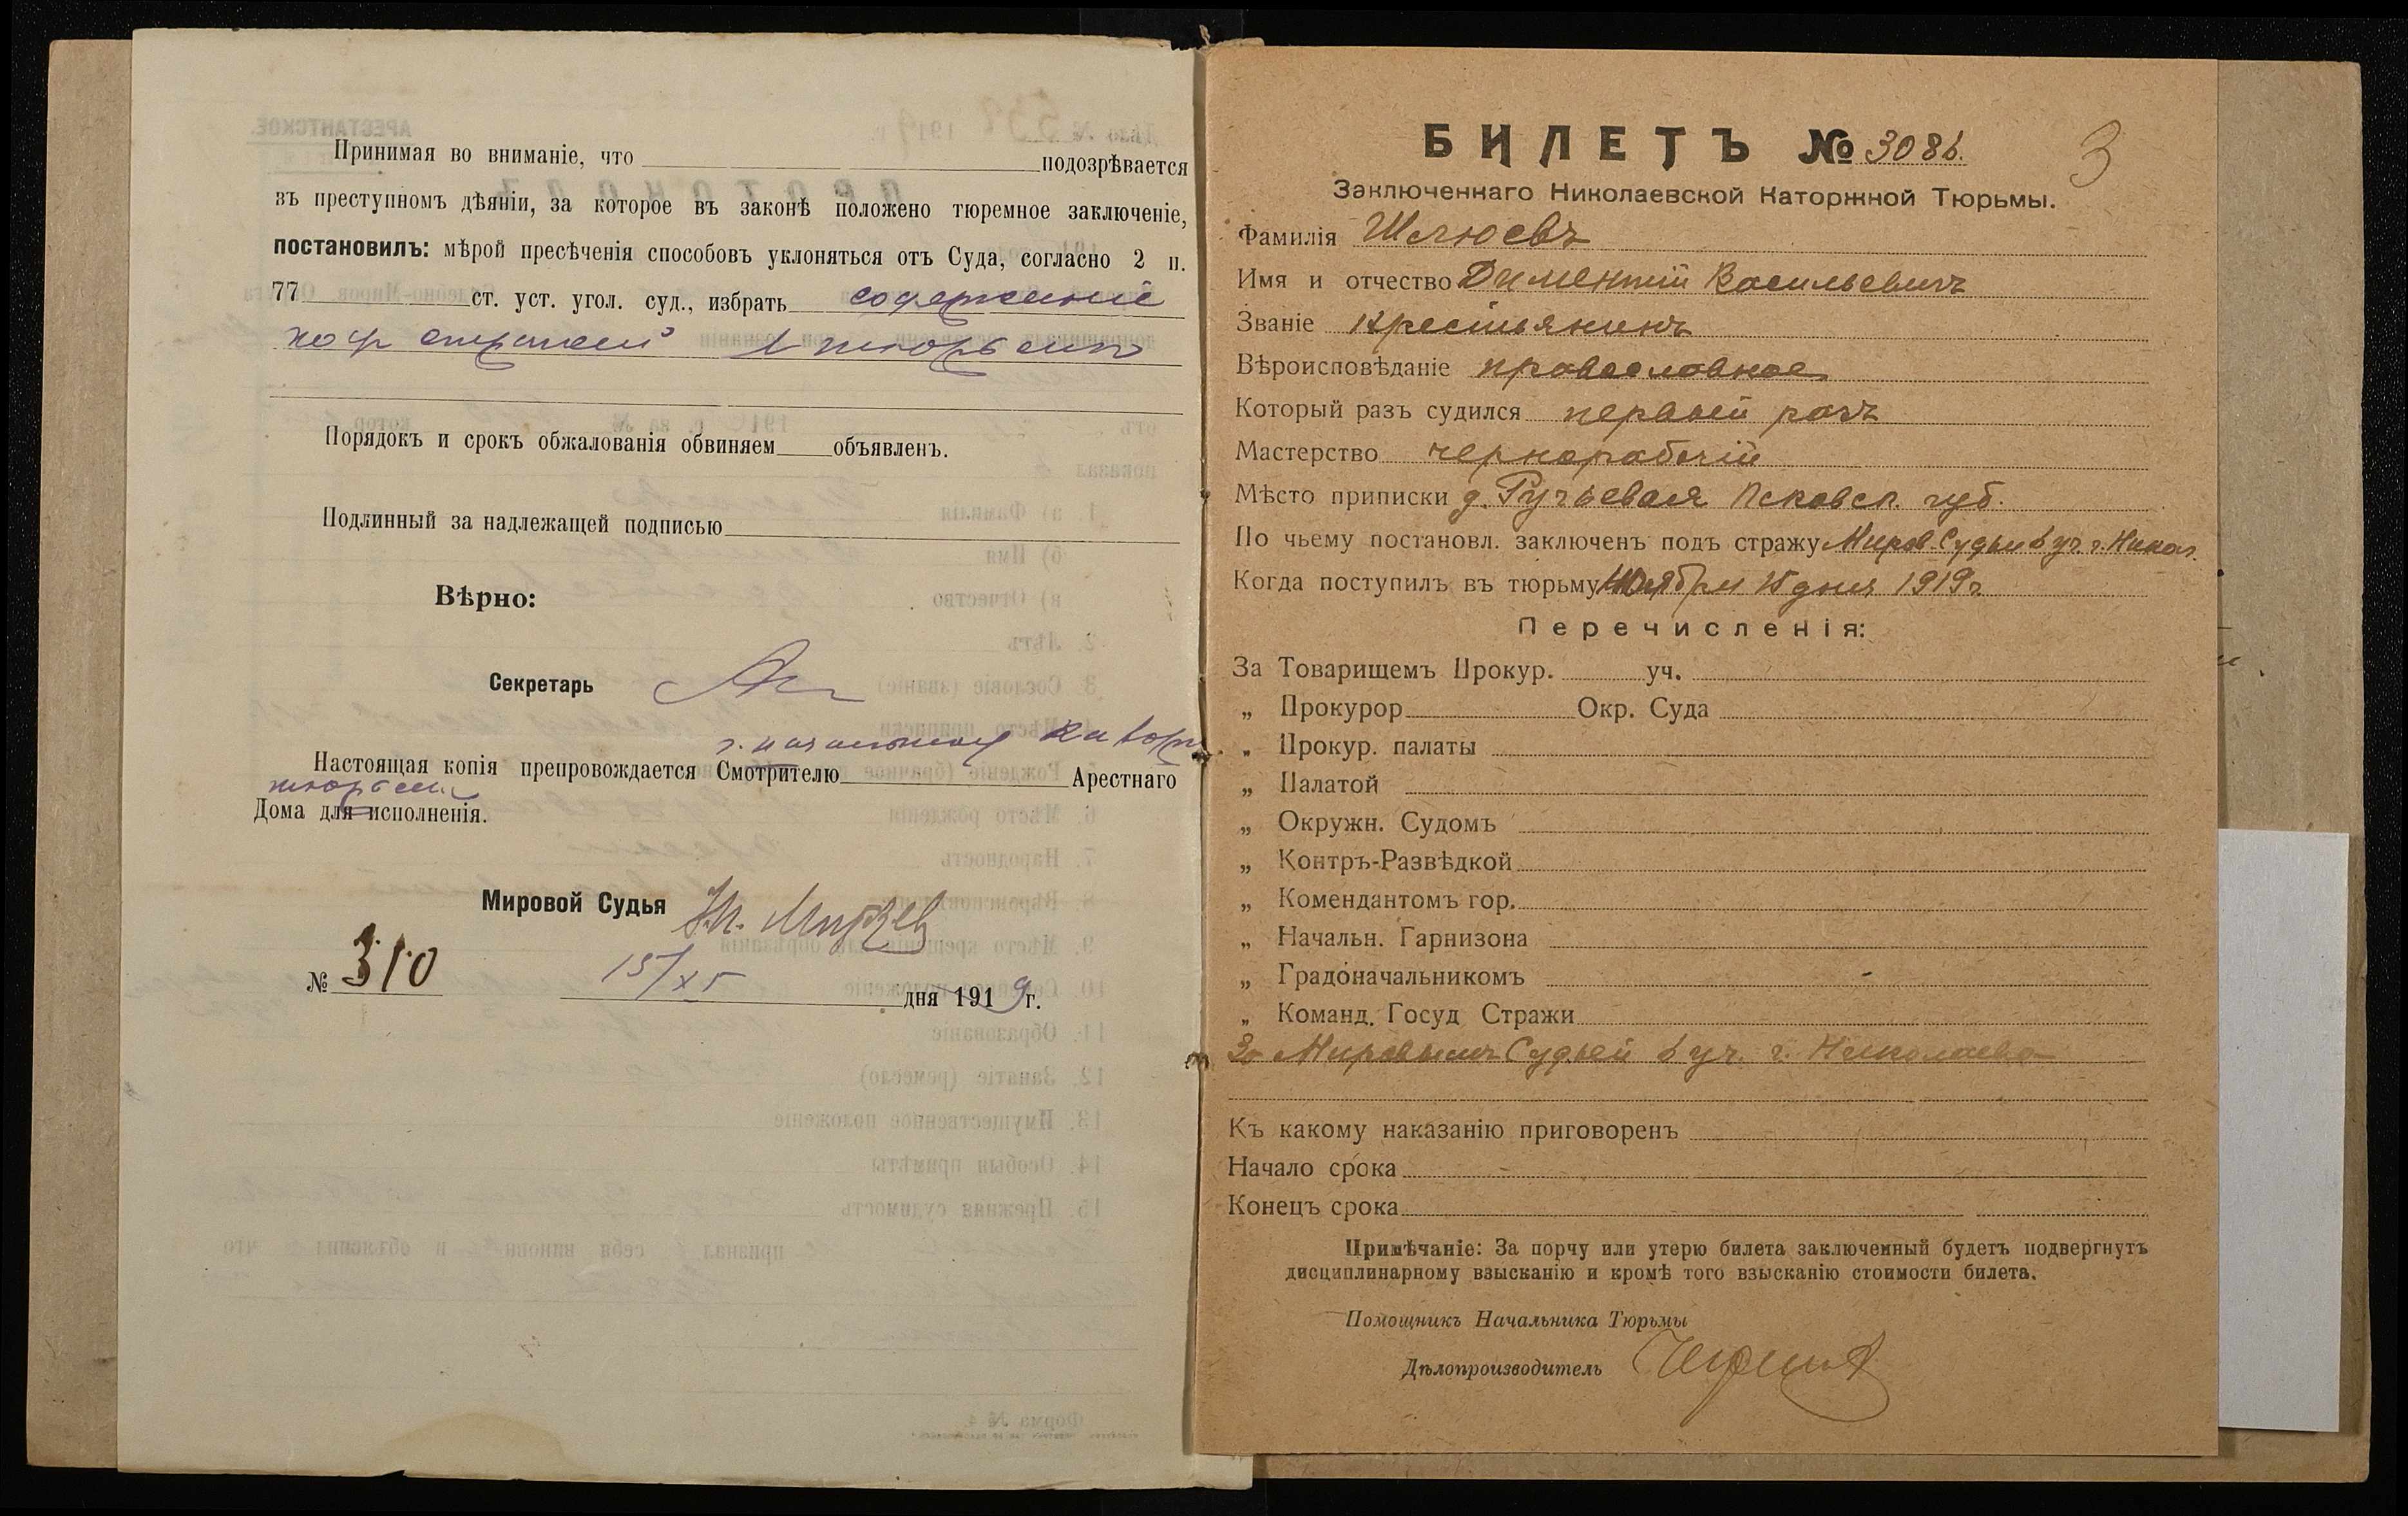 Принимая во вниманіе, что подозрѣвается
въ преступномъ дѣяніи, за которое въ законѣ положено тюремное заключеніе,
постановилъ: мѣрой пресѣченія способовъ уклоняться отъ Суда, согласно 2 п.
77 ст. уст. угол. суд., избрать содержаніе
под стражей в тюрьме
Порядокъ и срокъ обжалованія обвиняем объявленъ.
Подлинный за надлежащей подписью
Вѣрно:
Секретарь
г. начальнику каторж
Настоящая копія препровождается Смотрителю Арестнаго
тюрьмы
Дома для исполненія.
Мировой Судья
№ 310
15/XI дня 1919 г.
БИЛЕТЪ № 3086.
3
Заключеннаго Николаевской Каторжной Тюрьмы.
Фамилія
Имя и отчество Диментій Васильевичъ
Званіе крестьянинъ
Вѣроисповѣданіе православное
Который разъ судился первый разъ
Мастерство чернорабочій
Мѣсто приписки д. Ручьевая Псковск. губ.
По чьему постановл. заключенъ подъ стражу Миров. Судьи 6 уч. г. Никол.
Когда поступилъ въ тюрьму Ноября 15 дня 1919 г.
Перечисленія:
За Товарищемъ Прокур. уч.
„ Прокурор Окр. Суда
„ Прокур. палаты
„ Палатой
„ Окружн. Судомъ
„ Контръ-Развѣдкой
„ Комендантомъ гор.
„ Начальн. Гарнизона
„ Градоначальникомъ
„ Команд. Госуд Стражи
За Мировымъ Судьей 6 уч. г. Николаева
Къ какому наказанію приговоренъ
Начало срока
Конецъ срока
Примѣчаніе: За порчу или утерю билета заключенный будетъ подвергнутъ
дисциплинарному взысканію и кромѣ того взысканію стоимости билета.
Помощникъ Начальника Тюрьмы
Дѣлопроизводитель